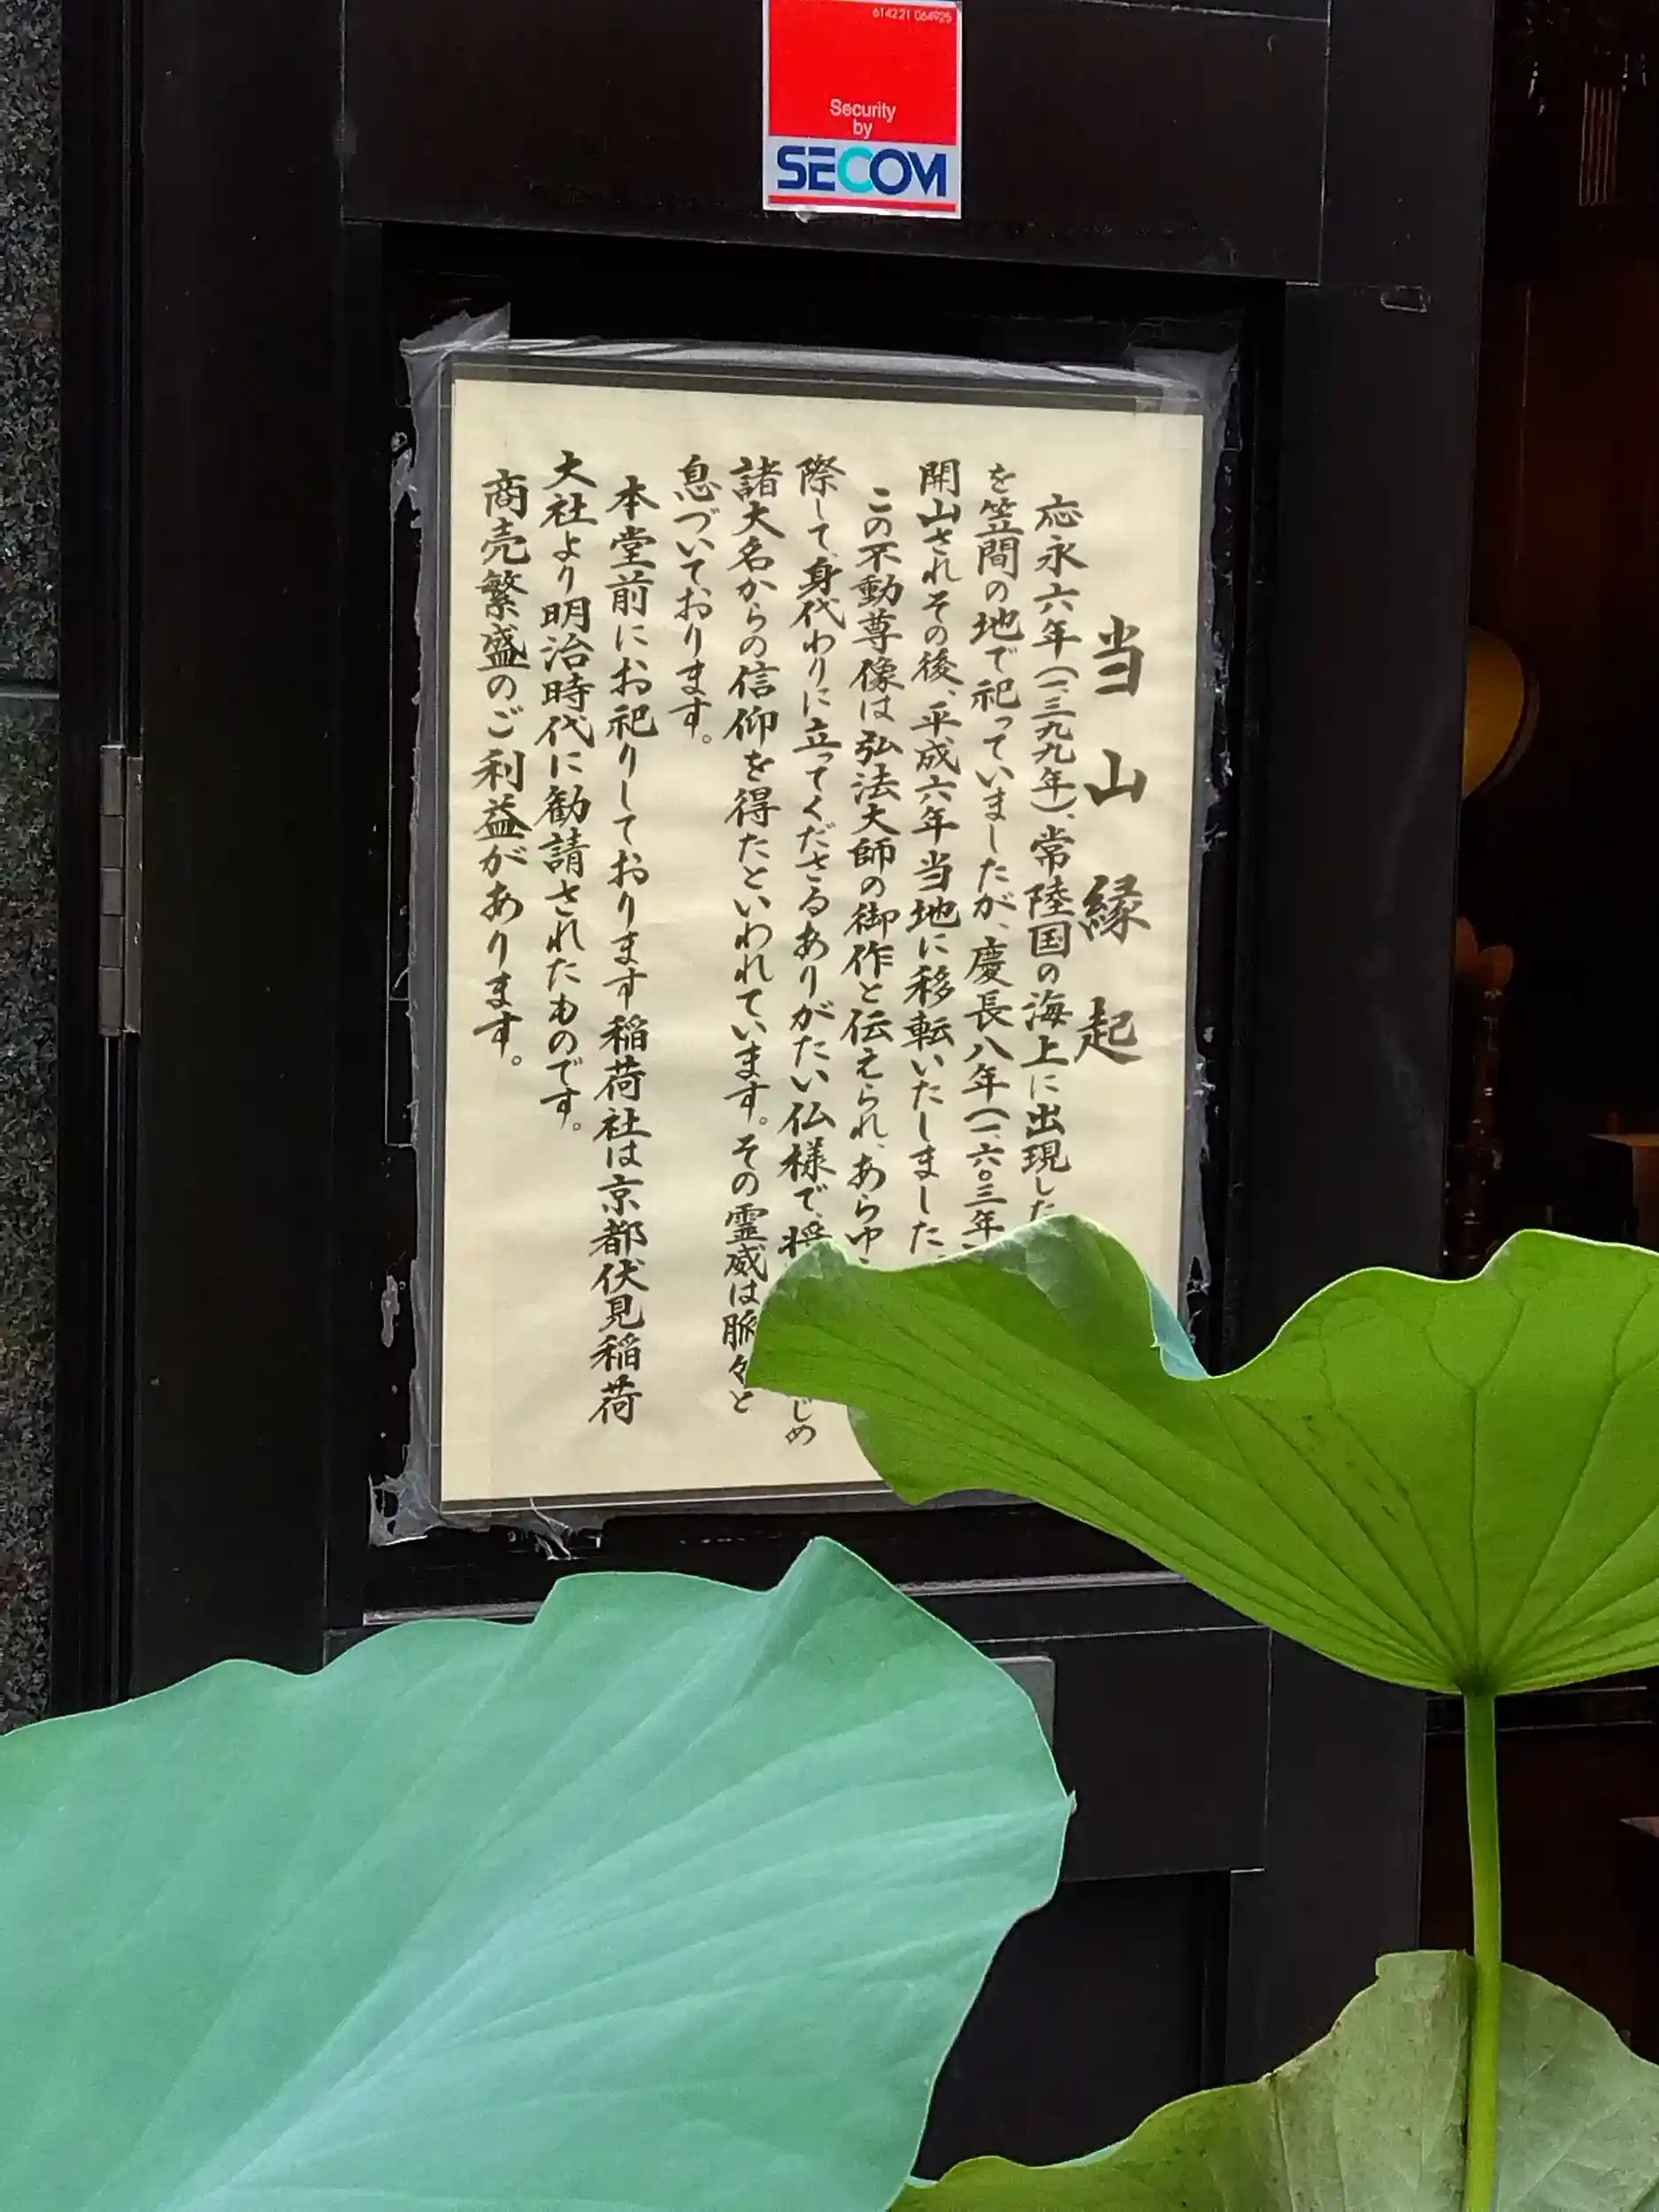 614221 064925
Security
by
SECOM
当山縁起
応永六年(一三九九年)、常陸国の海上に出現した
を笠間の地で祀っていましたが、慶長八年(一六〇三年)
開山されその後、平成六年当地に移転いたしました
この不動尊像は弘法大師の御作と伝えられ、あらゆ
際して、身代わりに立ってくださるありがたい仏様で、将 じめ
諸大名からの信仰を得たといわれています。その霊威は脈々と
息づいております。
本堂前にお祀りしております稲荷社は京都伏見稲荷
大社より明治時代に勧請されたものです。
商売繁盛のご利益があります。